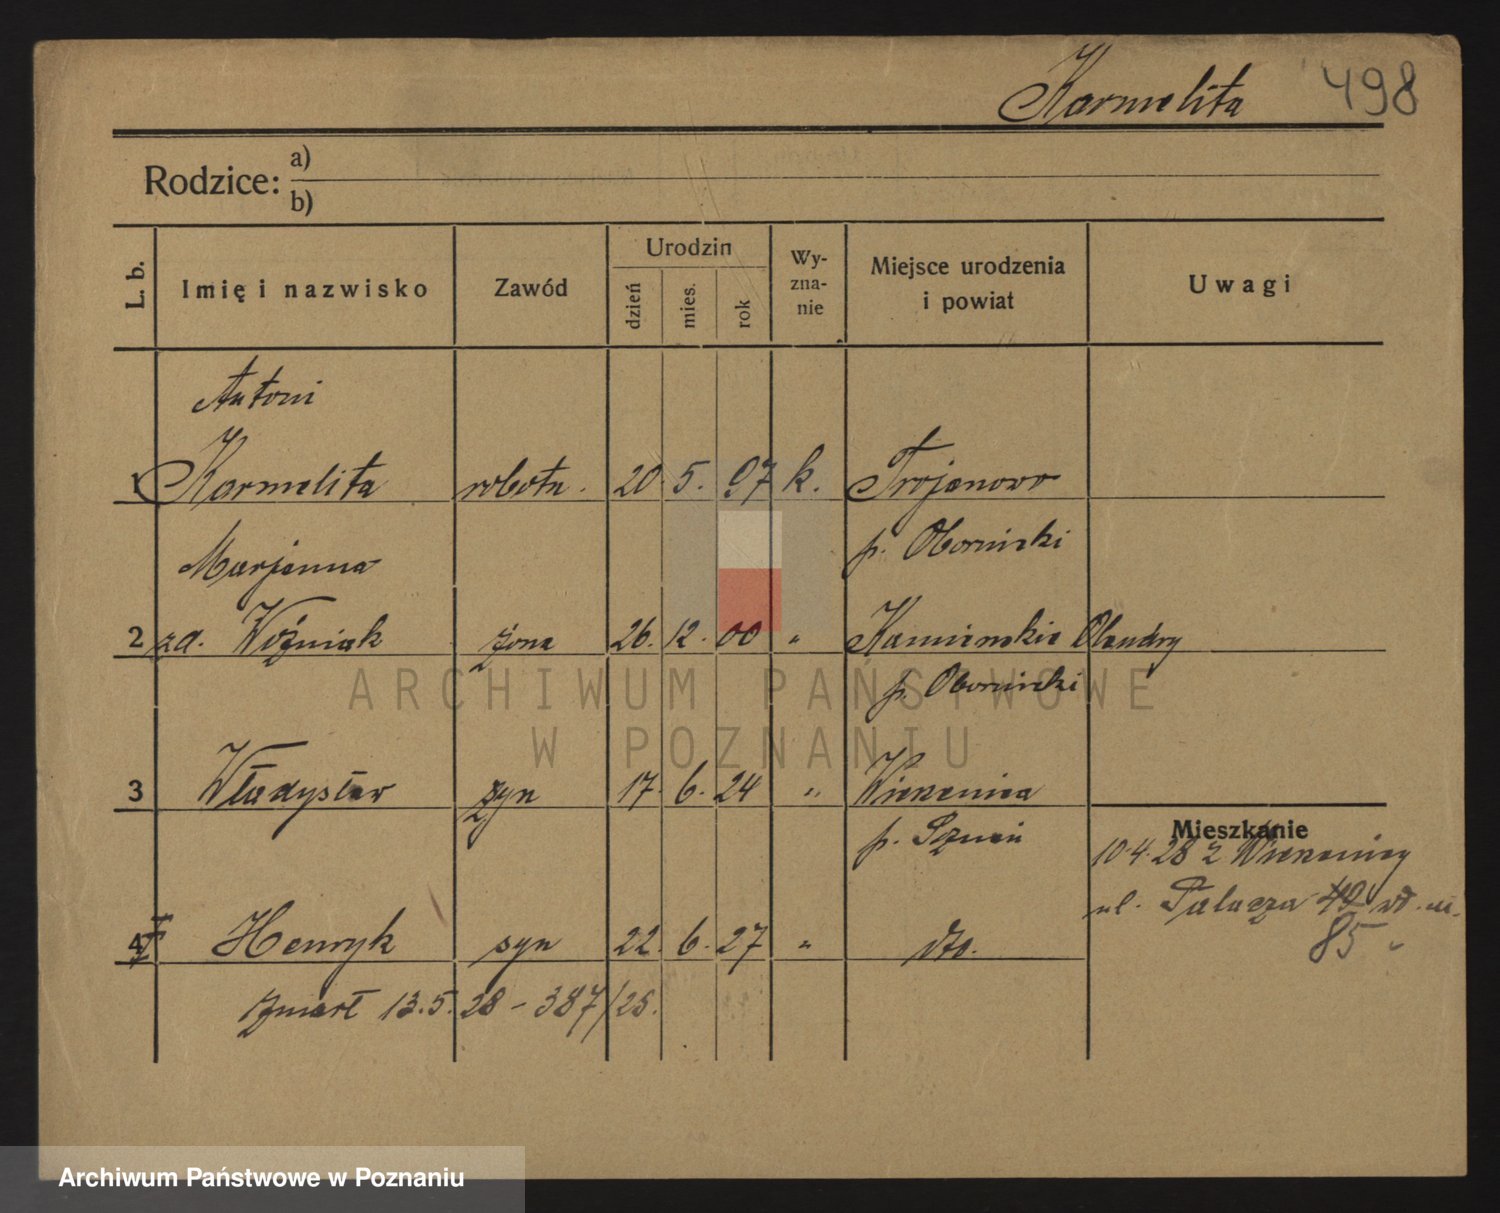 Karmelita 498
Rodzice: a)
b)
L. b. Imię i nazwisko Zawód Urodzin dzień mies. rok Wy-zna-nie Miejsce urodzenia i powiat Uwagi
Antoni
1 Karmelita robotn. 20. 5. 97 k. Trojanowo
p. Obornicki
Marjanna
2 zd. Woźniak żona 26. 12. 00 " Kamińskie Olendry
p. Obornicki
3 Władysław syn 17. 6. 24 " Wierzenica
p. Pznań
Mieszkanie
10.4.28 z Wierzenicy
ul. Palacza 42
85 "
4 Henryk syn 22. 6. 27 " dto.
zmarł 13.5.28 - 387/28.
ARCHIWUM PAŃSTWOWE
W POZNANIU
Archiwum Państwowe w Poznaniu